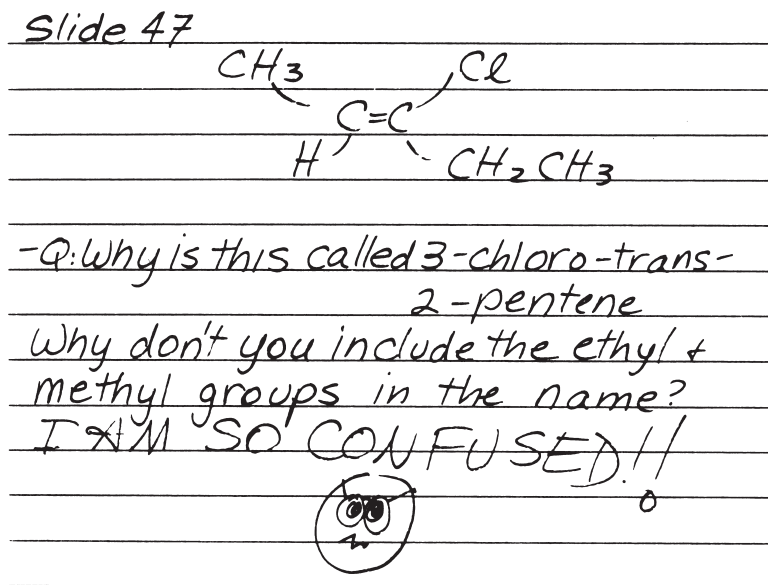 Slide 47
CH3 Cl
C=C
H CH2CH3
-Q: Why is this called 3-chloro-trans-
2-pentene
Why don't you include the ethyl +
methyl groups in the name?
I AM SO CONFUSED!!